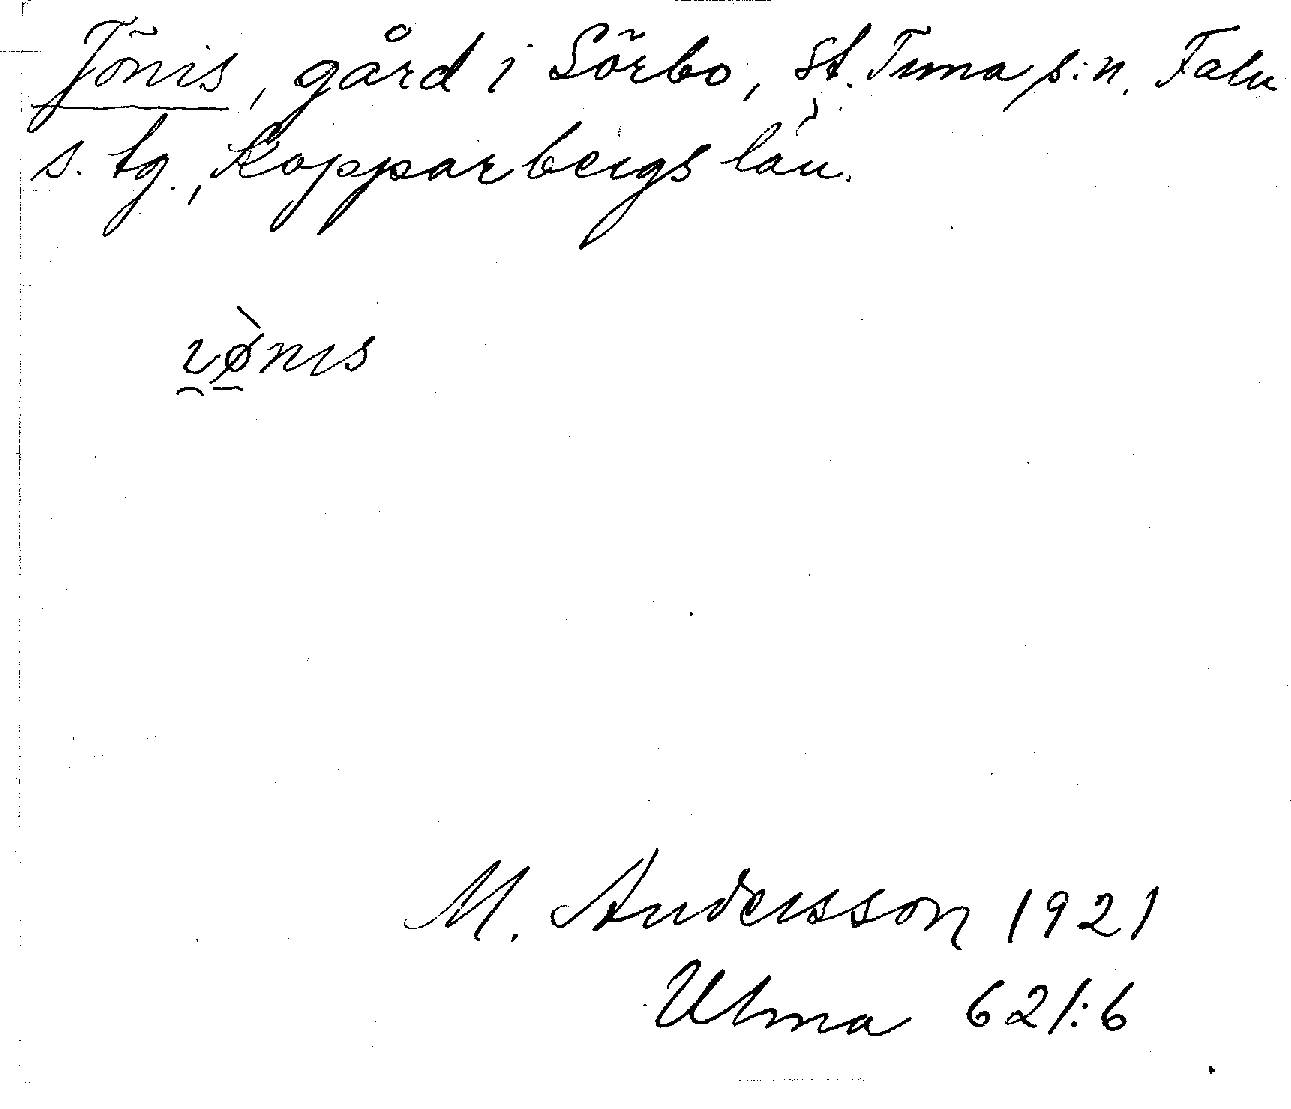 Jönis, gård i Sörbo, St. Tuna s:n, Falu
s. tg., Kopparbergs län.
ı̯ø̀nıs
M. Andersson 1921
Ulma 621:6